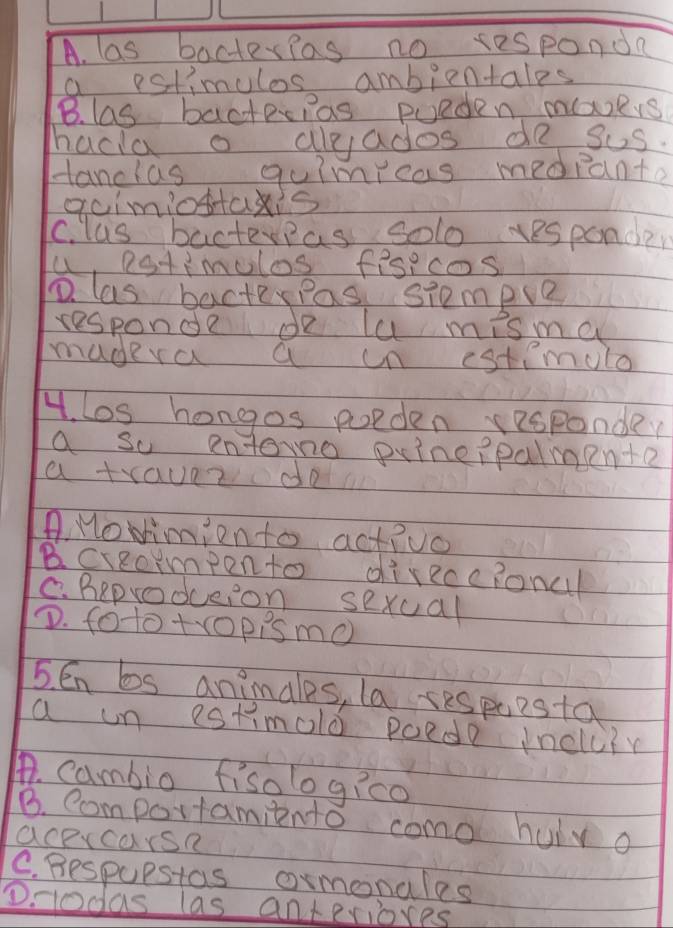 A. las bacterias no responde
a estimulos ambientales
B. las bacterias pueden movers
hacia o alejados de sus.
tancias quimicas mediante
quimiotaxis
C. las bacterias solo responden
a estimulos fisicos
D. las bacterias siempre
responde de la misma
madera a un estimulo
4. Los hongos pueden responder
a su entorno principalmente
a travez de
A. Movimiento activo
B. crecimiento direccional
C. Reproducion sexual
D. fototropismo
5. En los animales, la respuesta
a un estimulo puede incluir
A. cambio fisologico
B. Comportamiento como huir o
acercarse
C. Respuestas ormonales
D. Todas las anteriores